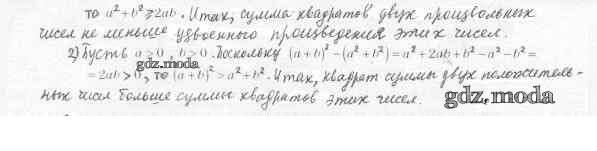 то a² + b² ⩾ 2ab. Итак, сумма квадратов двух произвольных
чисел не меньше удвоенного произведения этих чисел.
2) Пусть a > 0, b > 0. Поскольку (a + b)² − (a² + b²) = a² + 2ab + b² − a² − b² =
gdz.moda
= 2ab > 0, то (a + b)² > a² + b². Итак, квадрат суммы двух положитель-
ных чисел больше суммы квадратов этих чисел.
gdz.moda